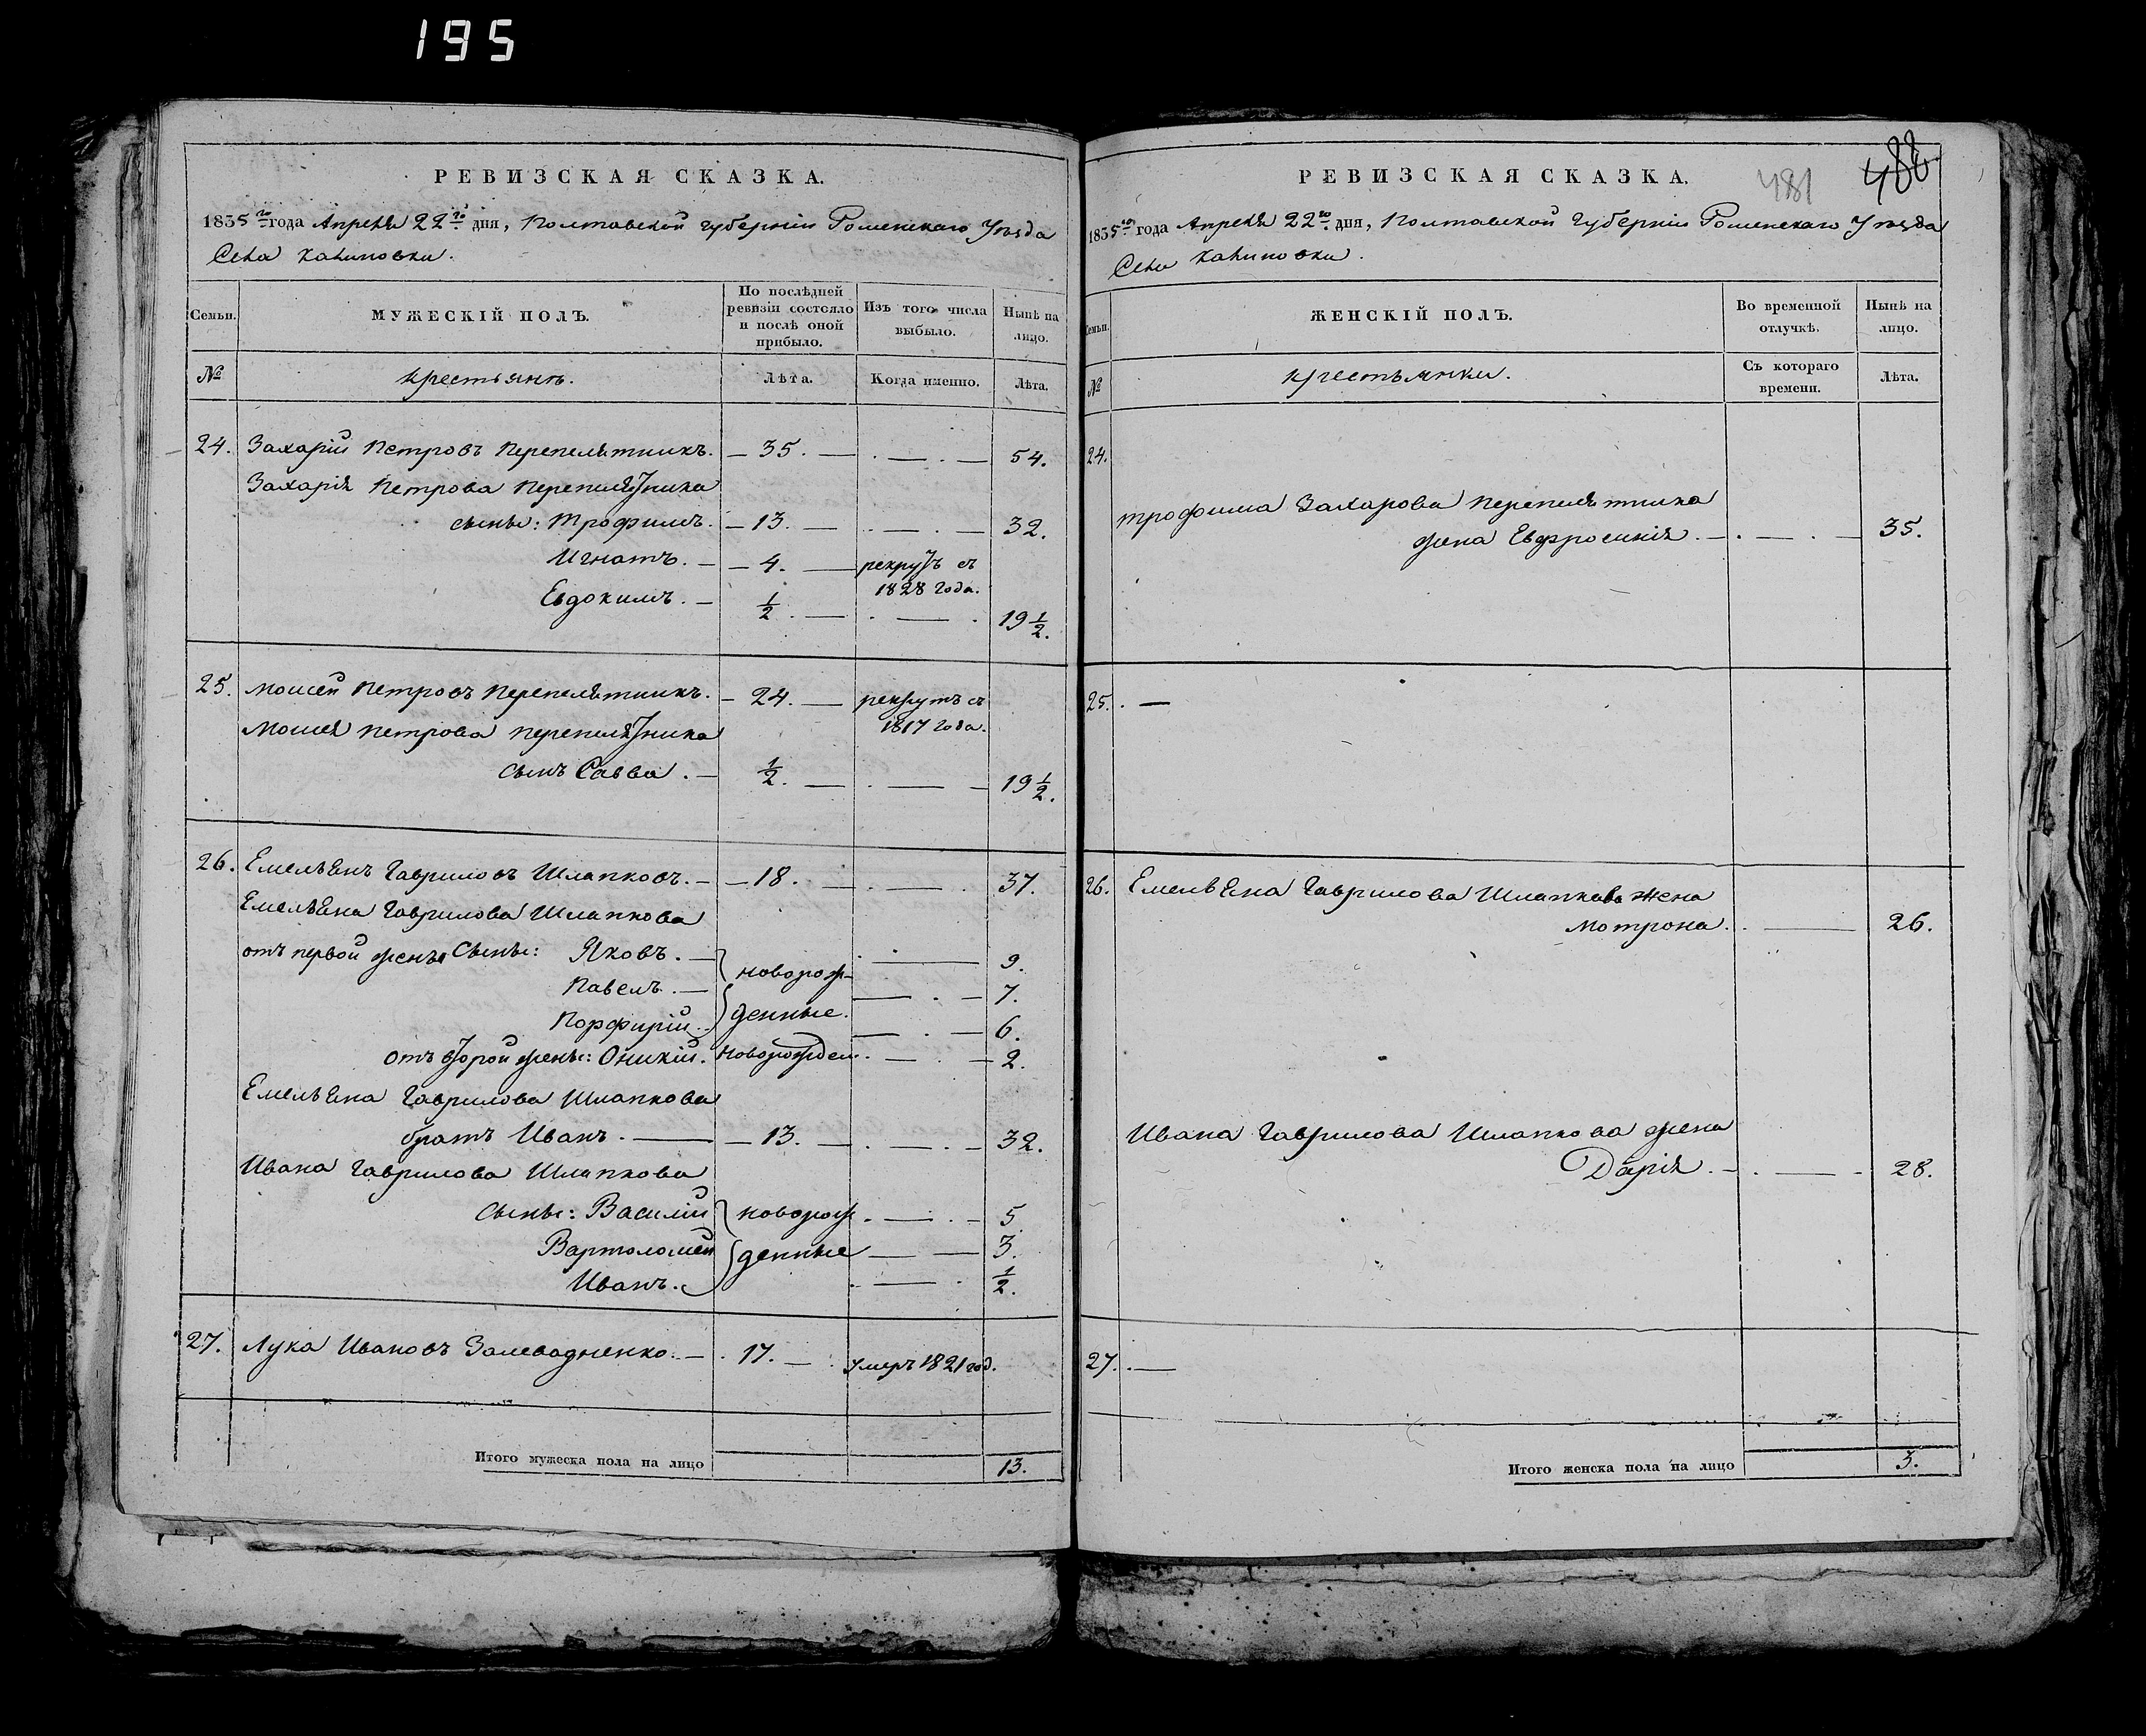 195
РЕВИЗСКАЯ СКАЗКА.
1835го года Апреля 22го дня, Полтавской губернии Роменскаго Уезда
Села Калиновки.
Семьи.
МУЖЕСКІЙ ПОЛЪ.
По послѣдней ревизіи состояло и послѣ оной прибыло.
Изъ того числа выбыло.
Нынѣ на лицо.
№
Крестьянъ.
Лѣта.
Когда именно.
Лѣта.
24. Захарій Петровъ Перепелятникъ. — 35. — 54.
Захарія Петрова Перепелятника
сыны: Трофимъ. — 13. — 32.
Игнатъ. — 4. — рекрутъ съ
1828 года.
Евдокимъ. — 1/2. — 19 1/2.
25. Моисей Петровъ Перепелятникъ. — 24. — рекрутъ съ
1817 года.
Моисея Петрова Перепелятника
сынъ Савва. — 1/2. — 19 1/2.
26. Емельянъ Гавриловъ Шлапковъ. — 18. — 37.
Емельяна Гаврилова Шлапкова
отъ первой жены Сыны: Яковъ. — 9.
новорож-
Павелъ. — 7.
денные.
Порфирій. — 6.
отъ второй жены: Оникій. новорожден. — 2.
Емельяна Гаврилова Шлапкова
братъ Иванъ. — 13. — 32.
Ивана Гаврилова Шлапкова
Сыны: Василій новорож — 5
Вартоломей денные — 3.
Иванъ. — 1/2.
27. Лука Ивановъ Залевадненко. — 17. — умеръ 1821 год.
Итого мужеска пола на лицо 13.
РЕВИЗСКАЯ СКАЗКА.
481
488
1835го года Апреля 22го дня, Полтавской Губернии Роменскаго Уезда
Села Калиновки.
Семьи.
ЖЕНСКІЙ ПОЛЪ.
Во временной отлучкѣ.
Нынѣ на лицо.
№
Крестьянки.
Съ котораго времени.
Лѣта.
24.
Трофима Захарова Перепелятника
жена Евфросинія. — 35.
25. —
26. Емельяна Гаврилова Шлапкова жена
Мотрона. — 26.
Ивана Гаврилова Шлапкова жена
Дарія. — 28.
27. —
Итого женска пола на лицо 3.